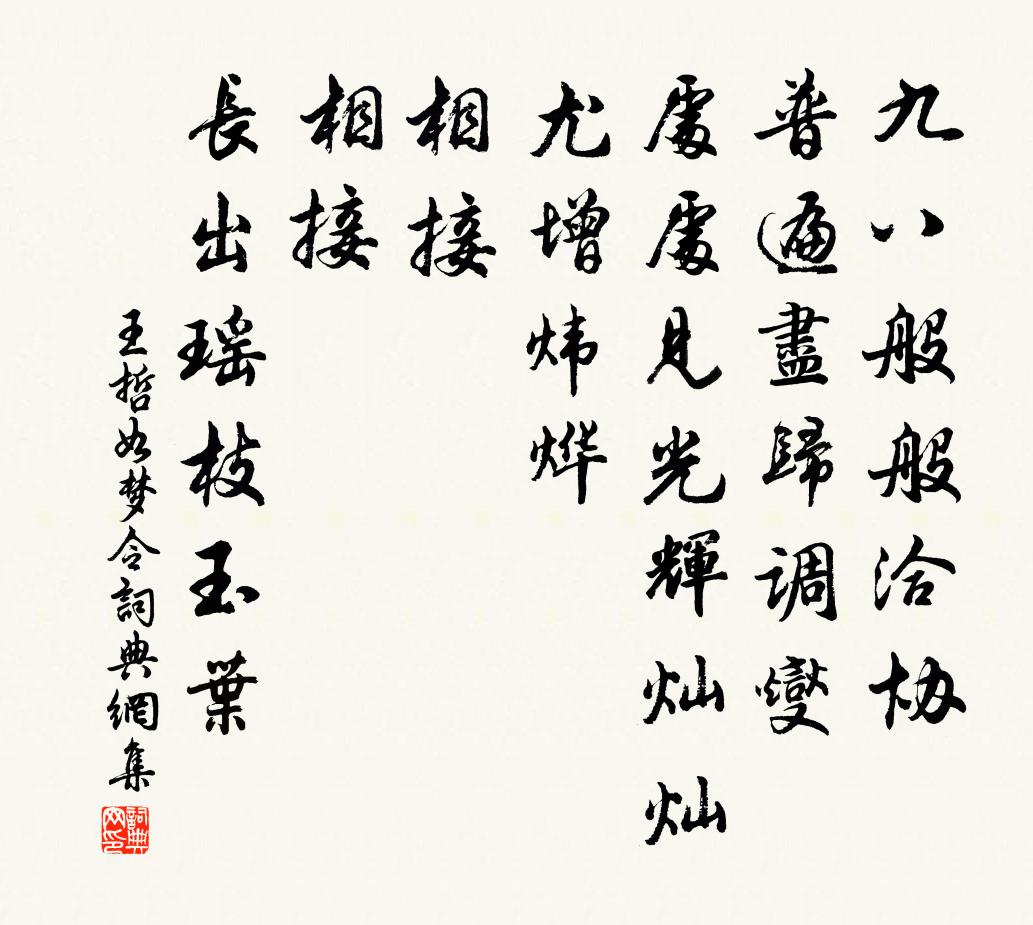 九八般般洽协
普遍盡歸調燮
處處見光輝灿灿
尤增炜烨
相接
相接
長出瑶枝玉葉
王哲如梦令詞典網集
詞典网印